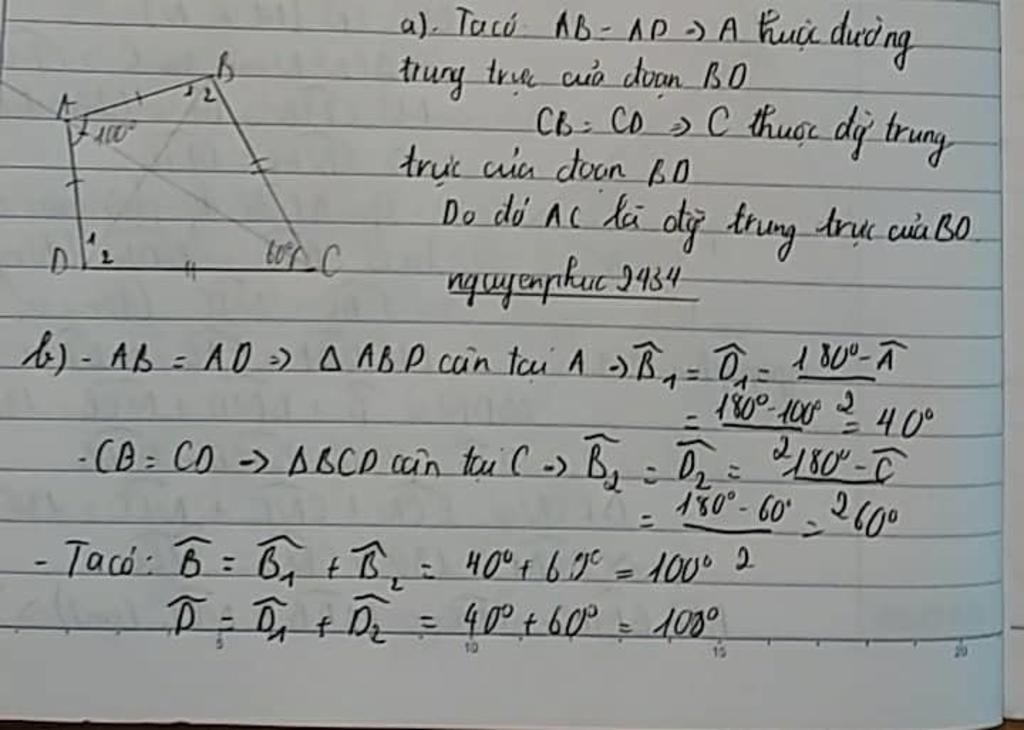 a). Ta có AB = AD => A thuộc đường
trung trực của đoạn BD
CB = CD => C thuộc đg trung
trực của đoạn BD
Do đó AC là đg trung trực của BD
nguyenphuc2434
A
B
1 2
100°
D
1
2
60°
C
b) - AB = AD => Δ ABD cân tại A -> B̂₁ = D̂₁ = (180° - Â)/2
= (180° - 100°)/2 = 40°
- CB = CD -> ΔBCD cân tại C -> B̂₂ = D̂₂ = (180° - Ĉ)/2
= (180° - 60°)/2 = 60°
- Ta có: B̂ = B̂₁ + B̂₂ = 40° + 60° = 100°
D̂ = D̂₁ + D̂₂ = 40° + 60° = 100°
5 10 15 20